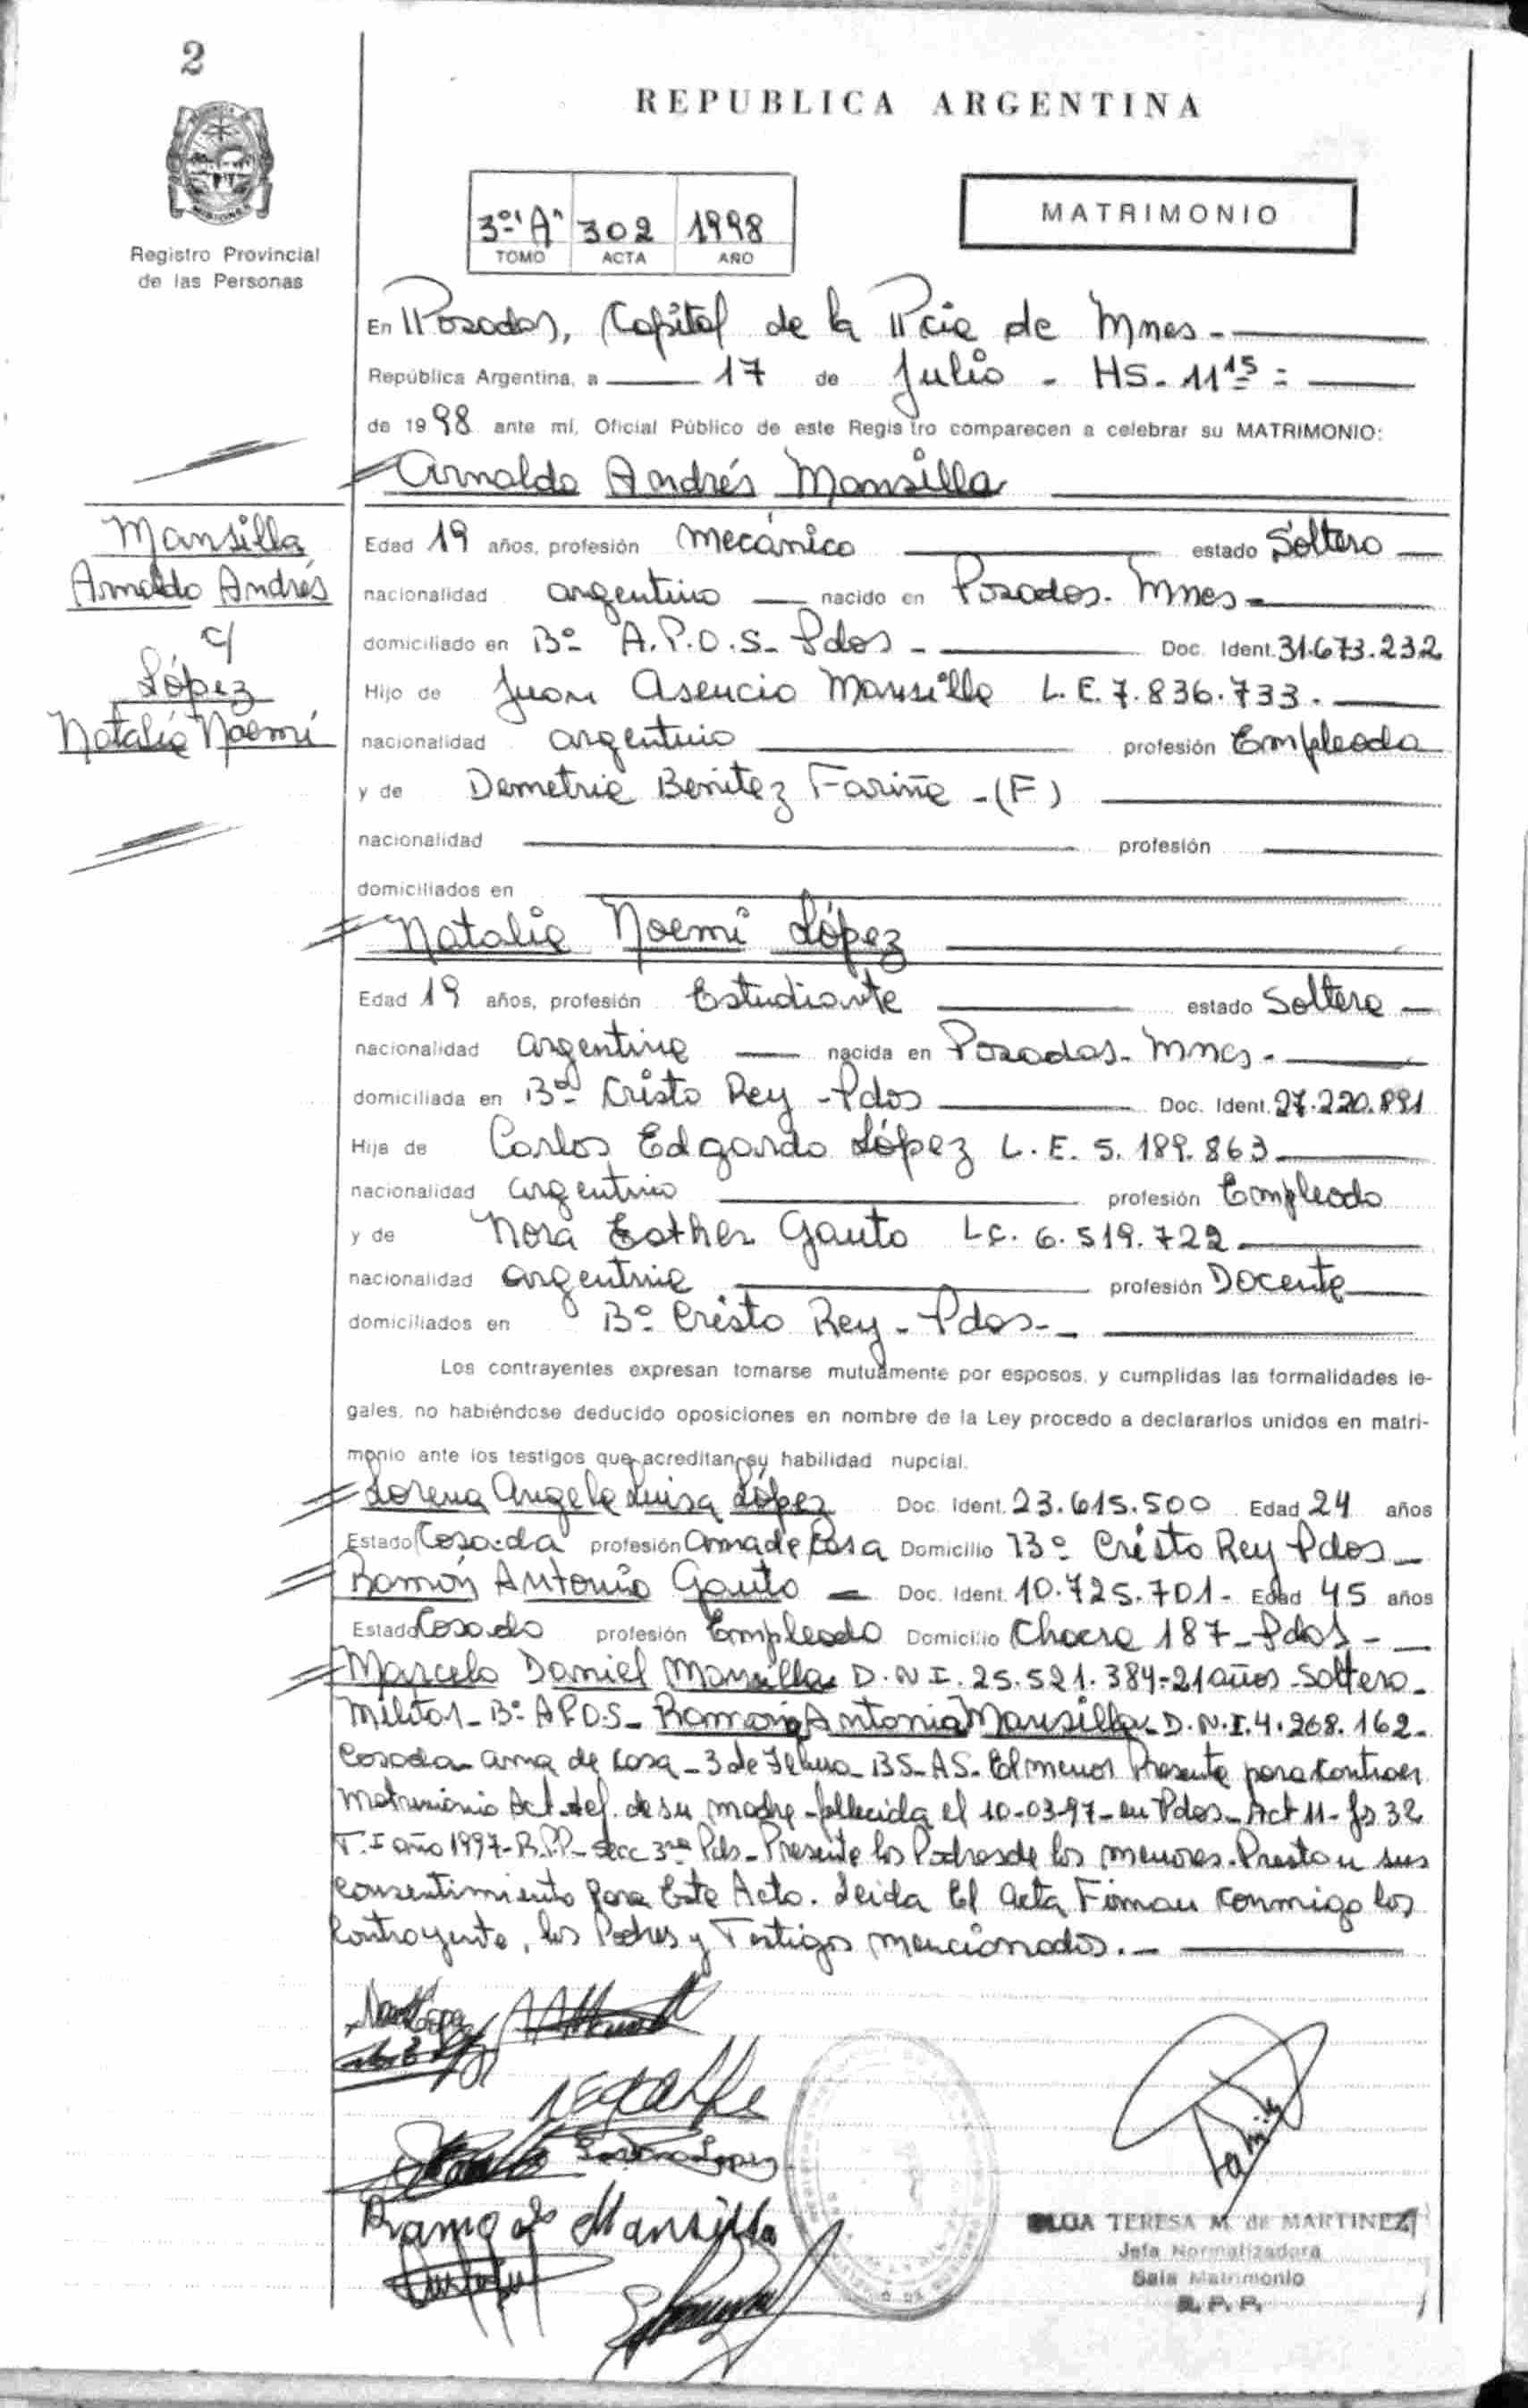 2
REPUBLICA ARGENTINA
Registro Provincial
de las Personas
3º "A" 302 1998
TOMO ACTA AÑO
MATRIMONIO
En Posadas, Capital de la Pcia de Mnes -
República Argentina, a 17 de Julio - HS. 11 15 =
de 1998 ante mí, Oficial Público de este Registro comparecen a celebrar su MATRIMONIO:
Arnaldo Andrés Mansilla
Mansilla
Arnaldo Andrés
c/
López
Natalia Noemí
Edad 19 años, profesión mecánico estado Soltero
nacionalidad argentino nacido en Posadas. Mnes -
domiciliado en Bº A.P.O.S - Pdas - Doc. Ident. 31.673.232
Hijo de Juan Asencio Mansilla L.E. 7.836.733 -
nacionalidad argentino profesión Empleado
y de Demetria Benitez Fariña - (F)
nacionalidad profesión
domiciliados en
Natalia Noemí López
Edad 19 años, profesión Estudiante estado Soltera
nacionalidad argentina nacida en Posadas - Mnes -
domiciliada en Bº Cristo Rey - Pdas Doc. Ident. 27.220.891
Hija de Carlos Edgardo López L.E. 5.189.863
nacionalidad argentino profesión Empleado
y de Nora Esther Gauto Lc. 6.519.722
nacionalidad argentina profesión Docente
domiciliados en Bº Cristo Rey - Pdas -
Los contrayentes expresan tomarse mutuamente por esposos, y cumplidas las formalidades le-
gales, no habiéndose deducido oposiciones en nombre de la Ley procedo a declararlos unidos en matri-
monio ante los testigos que acreditan su habilidad nupcial.
Lorena Angela Luisa López Doc. Ident. 23.615.500 Edad 24 años
Estado Casada profesión ama de Casa Domicilio Bº Cristo Rey Pdas -
Ramón Antonio Gauto - Doc. Ident. 10.725.701 - Edad 45 años
Estado Casado profesión Empleado Domicilio Chacra 187 - Pdas -
Marcelo Daniel Mansilla D.N.I. 25.521.384 - 21 años - Soltero -
Militar - Bº A.P.O.S - Ramona Antonia Mansilla - D.N.I. 4.268.162 -
Casada ama de casa - 3 de Febrero BS-AS - El menor Presenta para Contraer
Matrimonio Act. def. de su madre - fallecida el 10-03-97 - en Pdas - Act 11 - fs 32
T. I año 1997 - R.P.P - Secc 3ra Pds - Presente los Padres de los menores. Prestan sus
consentimiento para Este Acto. Leida El acta Firman conmigo los
Contrayente, los Padres y Testigos mencionados. -
Ramona Mansilla
TERESA M. de MARTINEZ
Jefa Normalizadora
Sala Matrimonio
R. P. P.